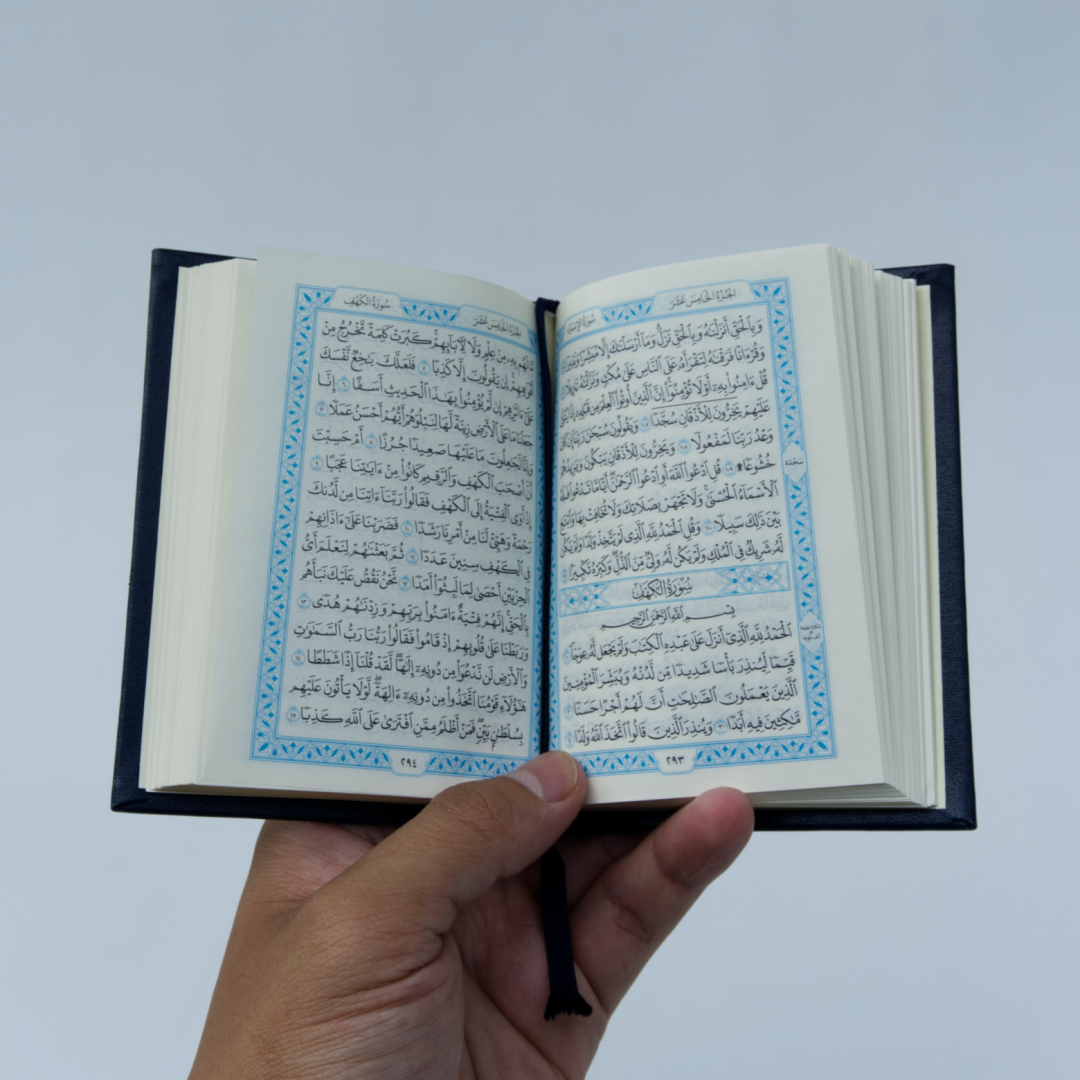 الجُزْءُ الخَامِسَ عَشَرَ
سُورَةُ الإِسْرَاءِ
وَبِٱلْحَقِّ أَنزَلْنَٰهُ وَبِٱلْحَقِّ نَزَلَ وَمَآ أَرْسَلْنَٰكَ إِلَّا مُبَشِّرًا وَنَذِيرًا
وَقُرْءَانًا فَرَقْنَٰهُ لِتَقْرَأَهُۥ عَلَى ٱلنَّاسِ عَلَىٰ مُكْثٍ وَنَزَّلْنَٰهُ تَنزِيلًا
قُلْ ءَامِنُوا۟ بِهِۦٓ أَوْ لَا تُؤْمِنُوٓا۟ إِنَّ ٱلَّذِينَ أُوتُوا۟ ٱلْعِلْمَ مِن قَبْلِهِۦٓ إِذَا يُتْلَىٰ
عَلَيْهِمْ يَخِرُّونَ لِلْأَذْقَانِ سُجَّدًا ١٠٧ وَيَقُولُونَ سُبْحَٰنَ رَبِّنَآ إِن كَانَ
وَعْدُ رَبِّنَا لَمَفْعُولًا ١٠٨ وَيَخِرُّونَ لِلْأَذْقَانِ يَبْكُونَ وَيَزِيدُهُمْ
خُشُوعًا ۩ ١٠٩ قُلِ ٱدْعُوا۟ ٱللَّهَ أَوِ ٱدْعُوا۟ ٱلرَّحْمَٰنَ أَيًّا مَّا تَدْعُوا۟ فَلَهُ
ٱلْأَسْمَآءُ ٱلْحُسْنَىٰ وَلَا تَجْهَرْ بِصَلَاتِكَ وَلَا تُخَافِتْ بِهَا وَٱبْتَغِ
بَيْنَ ذَٰلِكَ سَبِيلًا ١١٠ وَقُلِ ٱلْحَمْدُ لِلَّهِ ٱلَّذِى لَمْ يَتَّخِذْ وَلَدًا وَلَمْ يَكُن
لَّهُۥ شَرِيكٌ فِى ٱلْمُلْكِ وَلَمْ يَكُن لَّهُۥ وَلِىٌّ مِّنَ ٱلذُّلِّ وَكَبِّرْهُ تَكْبِيرًۢا
سُورَةُ الكَهْفِ
بِسْمِ ٱللَّهِ ٱلرَّحْمَٰنِ ٱلرَّحِيمِ
ٱلْحَمْدُ لِلَّهِ ٱلَّذِىٓ أَنزَلَ عَلَىٰ عَبْدِهِ ٱلْكِتَٰبَ وَلَمْ يَجْعَل لَّهُۥ عِوَجَا ١
قَيِّمًا لِّيُنذِرَ بَأْسًا شَدِيدًا مِّن لَّدُنْهُ وَيُبَشِّرَ ٱلْمُؤْمِنِينَ
ٱلَّذِينَ يَعْمَلُونَ ٱلصَّٰلِحَٰتِ أَنَّ لَهُمْ أَجْرًا حَسَنًا ٢
مَّٰكِثِينَ فِيهِ أَبَدًا ٣ وَيُنذِرَ ٱلَّذِينَ قَالُوا۟ ٱتَّخَذَ ٱللَّهُ وَلَدًا ٤
سَجْدَة
٢٩٣
الجُزْءُ الخَامِسَ عَشَرَ
سُورَةُ الكَهْفِ
مَّا لَهُم بِهِۦ مِنْ عِلْمٍ وَلَا لِءَابَآئِهِمْ كَبُرَتْ كَلِمَةً تَخْرُجُ مِنْ
أَفْوَٰهِهِمْ إِن يَقُولُونَ إِلَّا كَذِبًا ٥ فَلَعَلَّكَ بَٰخِعٌ نَّفْسَكَ
عَلَىٰٓ ءَاثَٰرِهِمْ إِن لَّمْ يُؤْمِنُوا۟ بِهَٰذَا ٱلْحَدِيثِ أَسَفًا ٦ إِنَّا
جَعَلْنَا مَا عَلَى ٱلْأَرْضِ زِينَةً لَّهَا لِنَبْلُوَهُمْ أَيُّهُمْ أَحْسَنُ عَمَلًا ٧
وَإِنَّا لَجَٰعِلُونَ مَا عَلَيْهَا صَعِيدًا جُرُزًا ٨ أَمْ حَسِبْتَ
أَنَّ أَصْحَٰبَ ٱلْكَهْفِ وَٱلرَّقِيمِ كَانُوا۟ مِنْ ءَايَٰتِنَا عَجَبًا ٩
إِذْ أَوَى ٱلْفِتْيَةُ إِلَى ٱلْكَهْفِ فَقَالُوا۟ رَبَّنَآ ءَاتِنَا مِن لَّدُنكَ
رَحْمَةً وَهَيِّئْ لَنَا مِنْ أَمْرِنَا رَشَدًا ١٠ فَضَرَبْنَا عَلَىٰٓ ءَاذَانِهِمْ
فِى ٱلْكَهْفِ سِنِينَ عَدَدًا ١١ ثُمَّ بَعَثْنَٰهُمْ لِنَعْلَمَ أَىُّ
ٱلْحِزْبَيْنِ أَحْصَىٰ لِمَا لَبِثُوٓا۟ أَمَدًا ١٢ نَّحْنُ نَقُصُّ عَلَيْكَ نَبَأَهُم
بِٱلْحَقِّ إِنَّهُمْ فِتْيَةٌ ءَامَنُوا۟ بِرَبِّهِمْ وَزِدْنَٰهُمْ هُدًى ١٣
وَرَبَطْنَا عَلَىٰ قُلُوبِهِمْ إِذْ قَامُوا۟ فَقَالُوا۟ رَبُّنَا رَبُّ ٱلسَّمَٰوَٰتِ
وَٱلْأَرْضِ لَن نَّدْعُوَا۟ مِن دُونِهِۦٓ إِلَٰهًا لَّقَدْ قُلْنَآ إِذًا شَطَطًا ١٤
هَٰٓؤُلَآءِ قَوْمُنَا ٱتَّخَذُوا۟ مِن دُونِهِۦٓ ءَالِهَةً لَّوْلَا يَأْتُونَ عَلَيْهِم
بِسُلْطَٰنٍۭ بَيِّنٍ فَمَنْ أَظْلَمُ مِمَّنِ ٱفْتَرَىٰ عَلَى ٱللَّهِ كَذِبًا ١٥
٢٩٤